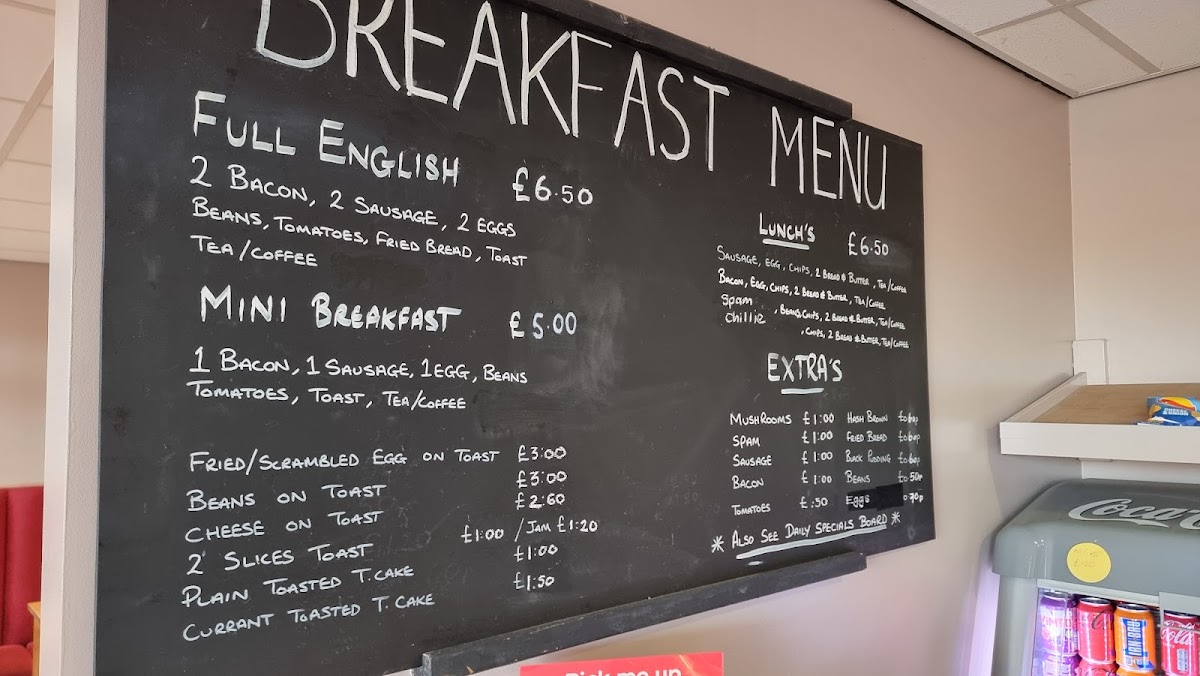 BREAKFAST MENU
FULL ENGLISH £6.50
2 BACON, 2 SAUSAGE, 2 EGGS
BEANS, TOMATOES, FRIED BREAD, TOAST
TEA/COFFEE
MINI BREAKFAST £5.00
1 BACON, 1 SAUSAGE, 1 EGG, BEANS
TOMATOES, TOAST, TEA/COFFEE
FRIED/SCRAMBLED EGG ON TOAST £3:00
BEANS ON TOAST £3:00
CHEESE ON TOAST £2:60
2 SLICES TOAST £1:00 / JAM £1:20
PLAIN TOASTED T. CAKE £1:00
CURRANT TOASTED T. CAKE £1:50
LUNCH'S £6.50
SAUSAGE, EGG, CHIPS, 2 BREAD & BUTTER, TEA/COFFEE
BACON, EGG, CHIPS, 2 BREAD & BUTTER, TEA/COFFEE
Spam , BEANS, CHIPS, 2 BREAD & BUTTER, TEA/COFFEE
Chillie , CHIPS, 2 BREAD & BUTTER, TEA/COFFEE
EXTRA'S
MUSHROOMS £1:00 HASH BROWN
SPAM £1:00 FRIED BREAD
SAUSAGE £1:00 BLACK PUDDING
BACON £1:00 BEANS £0:50p
TOMATOES £:50 Eggs 0:70p
* ALSO SEE DAILY SPECIALS BOARD *
Pick me up